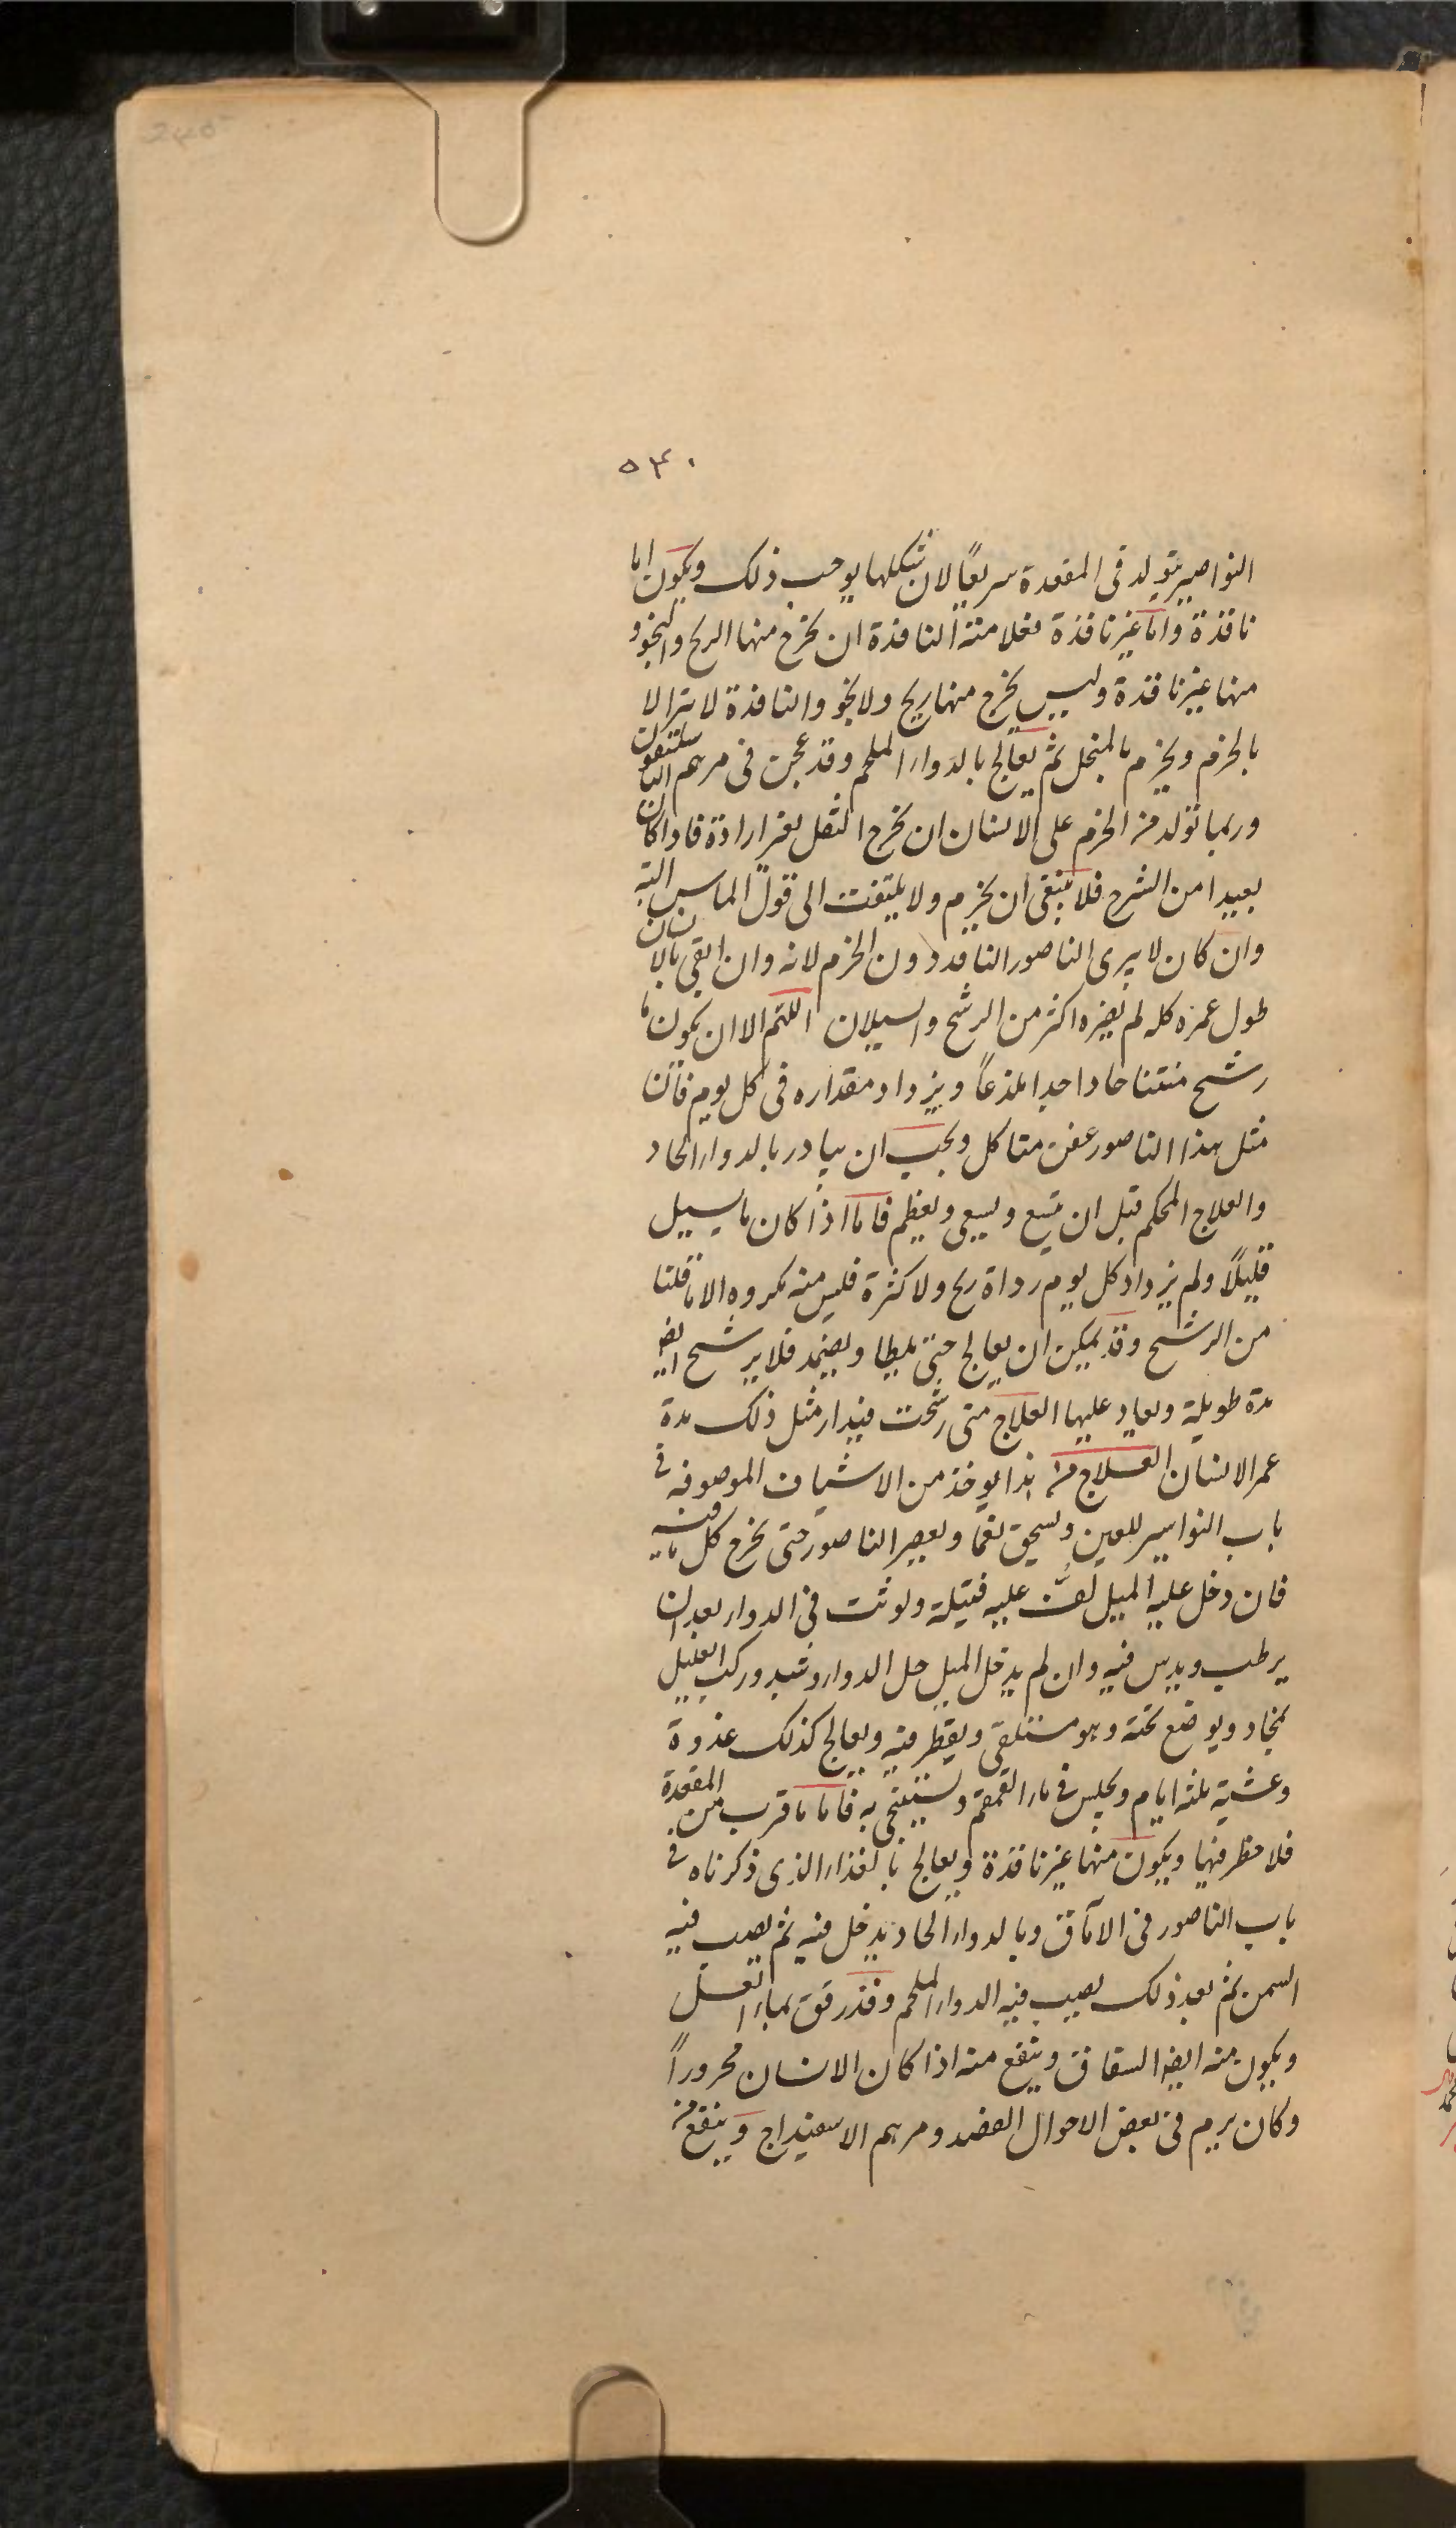 ٥٣٠
النواصير يتولد فى المقعدة سريعًا لان شكلها يوجب ذلك ويكون اما
نافذة واما غير نافذة فعلامته النافذة ان يخرج منها الريح والنجو و
منها غير نافذة وليس يخرج منها ريح ولا نجو والنافذة لا تبرا الا
بالخرم ويخرم بالمنجل ثم يعالج بالدواء الملحم وقد عجب فى مرهم
وربما تولد من الخرم على الانسان ان يخرج الثفل بغير ارادة فاذا كان
بعيدا من الشرج فلا ينبغى ان يخرم ولا يلتفت الى قول الماس البتة
وان كان لا يبرى الناصور النافذ دون الخرم لانه وان ابقى بالانسان
طول عمره كله لم يضره اكثر من الرشح والسيلان اللهم الا ان يكون ما
رشح منتنا حادا جدا ملذعاً ويزداد مقداره فى كل يوم فان
مثل هذا الناصور عفن متاكل ويجب ان يبادر بالدواء الحاد
والعلاج المحكم قبل ان يتسع ويسعى ويعظم فاما اذا كان ما يسيل
قليلاً ولم يزداد كل يوم رداة ريح ولا كثرة فليس منه مكروه الا ما قلنا
من الرشح وقد يمكن ان يعالج حتى يلطا ويضمد فلا يرشح ايضا
مدة طويلة ويعاد عليها العلاج متى رشحت فيدار مثل ذلك مدة
عمر الانسان العلاج من هذا يوخذ من الاشياف الموصوفه فى
باب النواسير للعين ويسحق نعما ويعصر الناصور حتى يخرج كل ما فيه
فان دخل عليه الميل لُفَّ عليه فتيلة ولوثت فى الدواء بعد ان
يرطب ويدس فيه وان لم يدخل الميل حل الدواء وشد وركب العليل
بمخاد ويوضع تحته وهو مستلقى ويقطر فيه ويعالج كذلك غدوة
وعشية ثلثه ايام ويجلس فى ماء القمقم ويستنجى به فاما ما قرب من المقعدة
فلا خطر فيها ويكون منها غير نافذة ويعالج بالغذاء الذى ذكرناه فى
باب الناصور فى الآماق وبالدواء الحاد يدخل فيه ثم يصب فيه
السمن ثم بعد ذلك يصب فيه الدواء الملحم وقد رقق بماء العسل
ويكون منه ايضا السقاق وينفع منه اذا كان الانسان محروراً
وكان يرم فى بعض الاحوال الفصد ومرهم الاسفيداج وينفع من